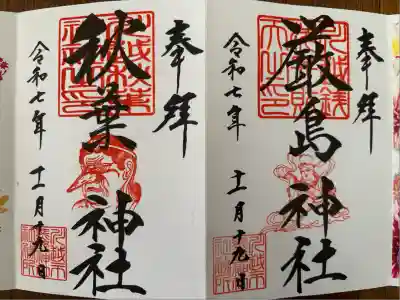 奉拝
厳島神社
令和七年
十一月十九日
奉拝
秋葉神社
令和七年
十一月十九日